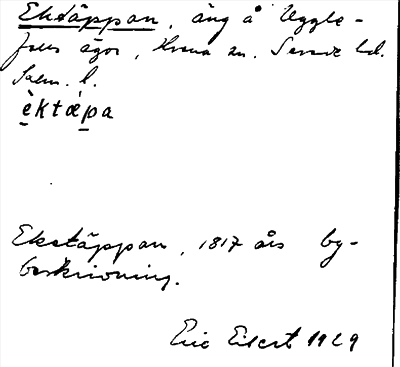 Ektäppan, äng å Uggle-
fors ägor, Hova sn. Sevede hd.
Kalm. l.
èktæ̀pa
Eketäppan, 1817 års by-
beskrivning.
Eric Elgert 1929